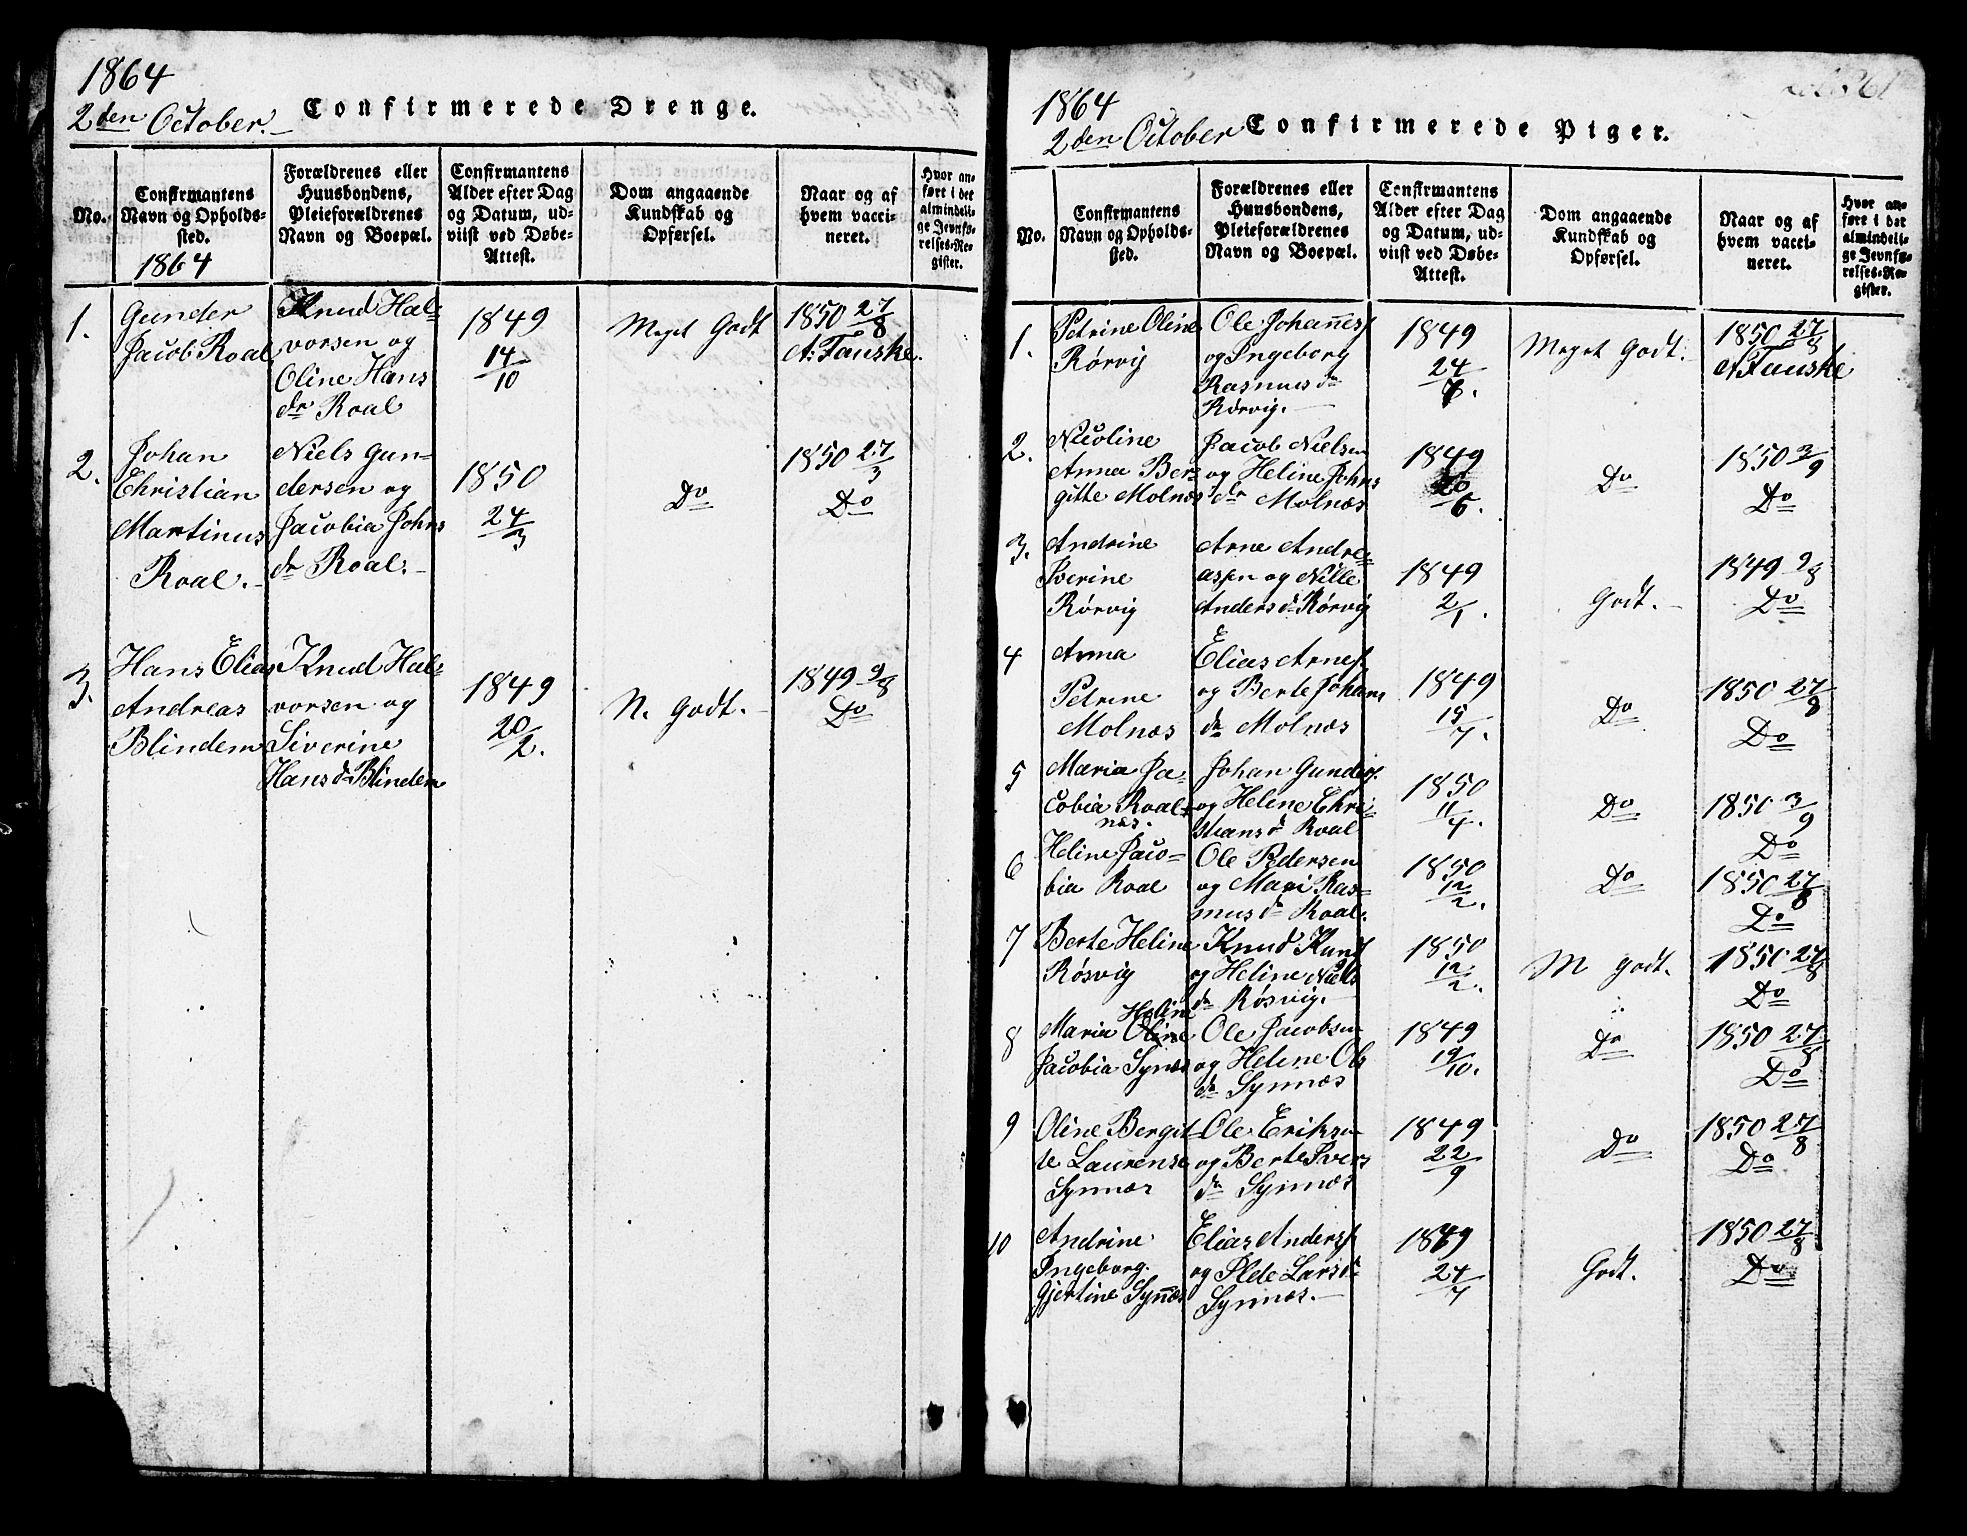 1864
2den October.
Confirmerede Drenge.
No.
Confirmantens
Navn og Opholds-
sted.
1864
Forældrenes eller
Huusbondens,
Pleieforældrenes
Navn og Boepæl.
Confirmantens
Alder efter Dag
og Datum, ud-
viist ved Døbe-
Attest.
Dom angaaende
Kundskab og
Opførsel.
Naar og af
hvem vacci-
neret.
Hvor an-
ført i det
almindeli-
ge Jevnfø-
relses-Re-
gister.
1.
Gunder
Jacob Roal
Knud Hal-
vorsen og
Oline Hans
dr Roal
1849
14/10
Meget Godt
1850 27/8
A. Fauske.
2.
Johan
Christian
Martinus
Roal.
Niels Gun-
dersen og
Jacobia Johns
dr Roal.
1850
24/3
Do
1850 27/3
Do
3.
Hans Elias
Andreas
Blindem
Knud Hal-
vorsen og
Siverine
Hans d Blindem
1849
20/2.
N. Godt.
1849 9/8
Do
1864
2den October
Confirmerede Piger.
No.
Confirmantens
Navn og Opholds-
sted.
Forældrenes eller
Huusbondens,
Pleieforældrenes
Navn og Boepæl.
Confirmantens
Alder efter Dag
og Datum, ud-
viist ved Døbe-
Attest.
Dom angaaende
Kundskab og
Opførsel.
Naar og af
hvem vacci-
neret.
Hvor an-
ført i det
almindeli-
ge Jevnfø-
relses-Re-
gister.
1.
Petrine Oline
Rørvig
Ole Johannes
og Ingeborg
Rasmus dr
Rørvig.
1849
Meget Godt.
1850 27/8
A Fauske
2.
Nicoline
Anna Ber-
gitte Molnæs
Jacob Nielsen
og Heline Johns
dr Molnæs
1849
Do
1850 3/9
Do
3.
Andrine
Iverine
Rørvig
Arne Andre-
assen og Nille
Anders d Rørvig
1849
2/1.
Godt.
1849 9/8
Do
4
Anna
Petrine
Molnæs
Elias Arnes
og Berte Johans
dr Molnæs
1849
15/7.
Do
1850 27/8
Do
5
Maria Ja-
cobia Roal
næs.
Johan Gunders.
og Helene Chri-
stians d Roal
1850
11/4.
Do
1850 3/9
Do
6
Heline Jaco-
bia Roal
Ole Pedersen
og Mari Ras-
mus d Roal.
1850
12/2.
Do
1850 27/8
Do
7
Berte Heline
Røsvig
Knud Knuds
og Heline Niels
dr Røsvig.
1850
12/2.
M Godt.
1850 27/8
Do
8
Heline
Maria Oline
Jacobia Synes
Ole Jacobsen
og Helene Ols
dr Synnæs
1849
19/10.
Do
1850 27/8
Do
9
Oline Bergit-
te Laurense
Synnæs
Ole Eriksen
og Berte Ivers
dr Synnæs
1849
22/9
Do
1850 27/8
Do
10
Andrine
Ingeborg
Gjertine Synnæs
Elias Anders
og Ilde Lars d
Synnæs.
1849
24/7
Godt.
1850 27/8
Do